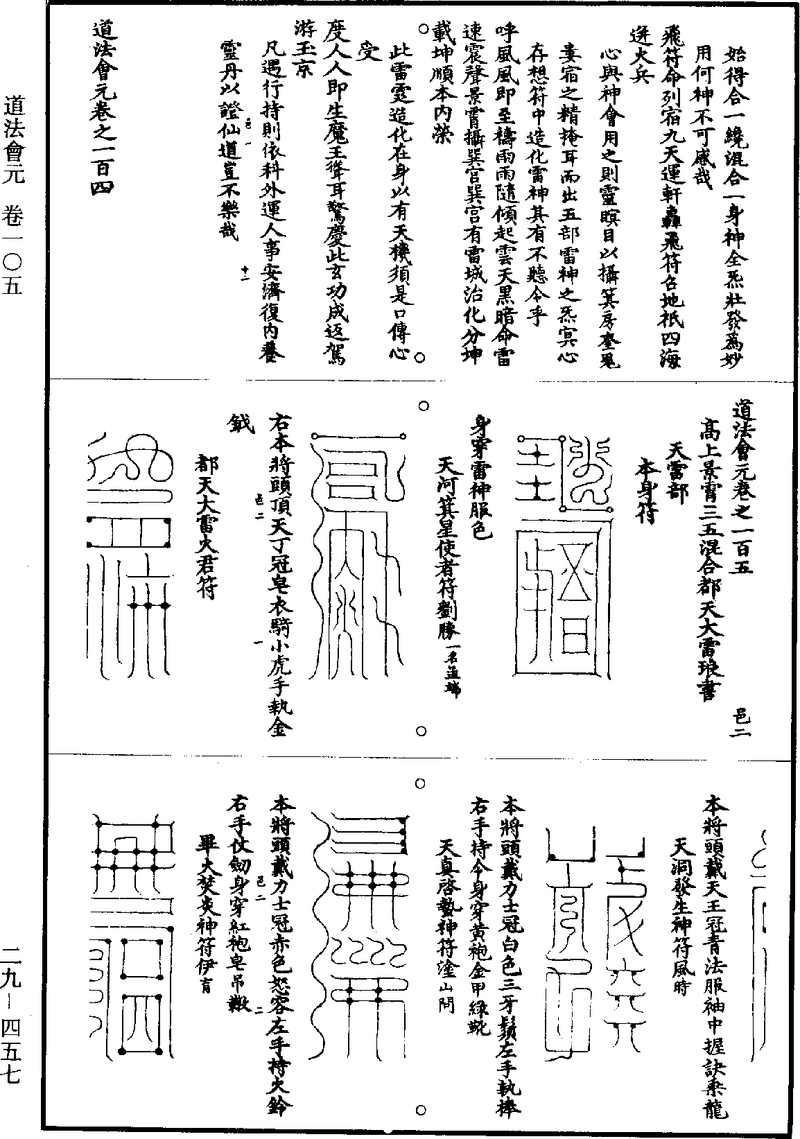 始得合一纔混合一身神全炁壯發為妙
用何神不可感哉
飛符命列宿九天運軒轟飛符召地祇四海
迸火兵
心與神會用之則靈瞑目以攝箕房奎鬼
婁宿之精掩耳而出五部雷神之炁冥心
存想符中造化雷神其有不聽令乎
呼風風即至禱雨雨隨傾起雲天黑暗命雷
速震聲景霄攝巽宮巽宮有雷城治化分坤
載坤順本內榮
此雷霆造化在身以有天機須是口傳心
受
度人人即生魔王聳耳驚慶此玄功成返駕
游玉京
凡遇行持則依科外運人事安濟復內養
靈丹以證仙道豈不樂哉
邑一
十二
道法會元卷之一百四
道法會元卷之一百五
邑二
高上景霄三五混合都天大雷琅書
天雷部
本身符
身穿雷神服色
天河箕星使者符劉勝一名孟端
右本將頭頂天丁冠皂衣騎小虎手執金
鉞
邑二
一
都天大雷火君符
本將頭戴天王冠青法服袖中握訣乘龍
天洞發生神符風時
本將頭戴力士冠白色三牙鬚左手執棒
右手持令身穿黃袍金甲綠靴
天真啓蟄神符塗山問
本將頭戴力士冠赤色怒容左手持火鈴
右手仗劒身穿紅袍皂吊橔
邑二
二
畢火焚炎神符伊育
道法會元 卷一〇五
二九－四五七